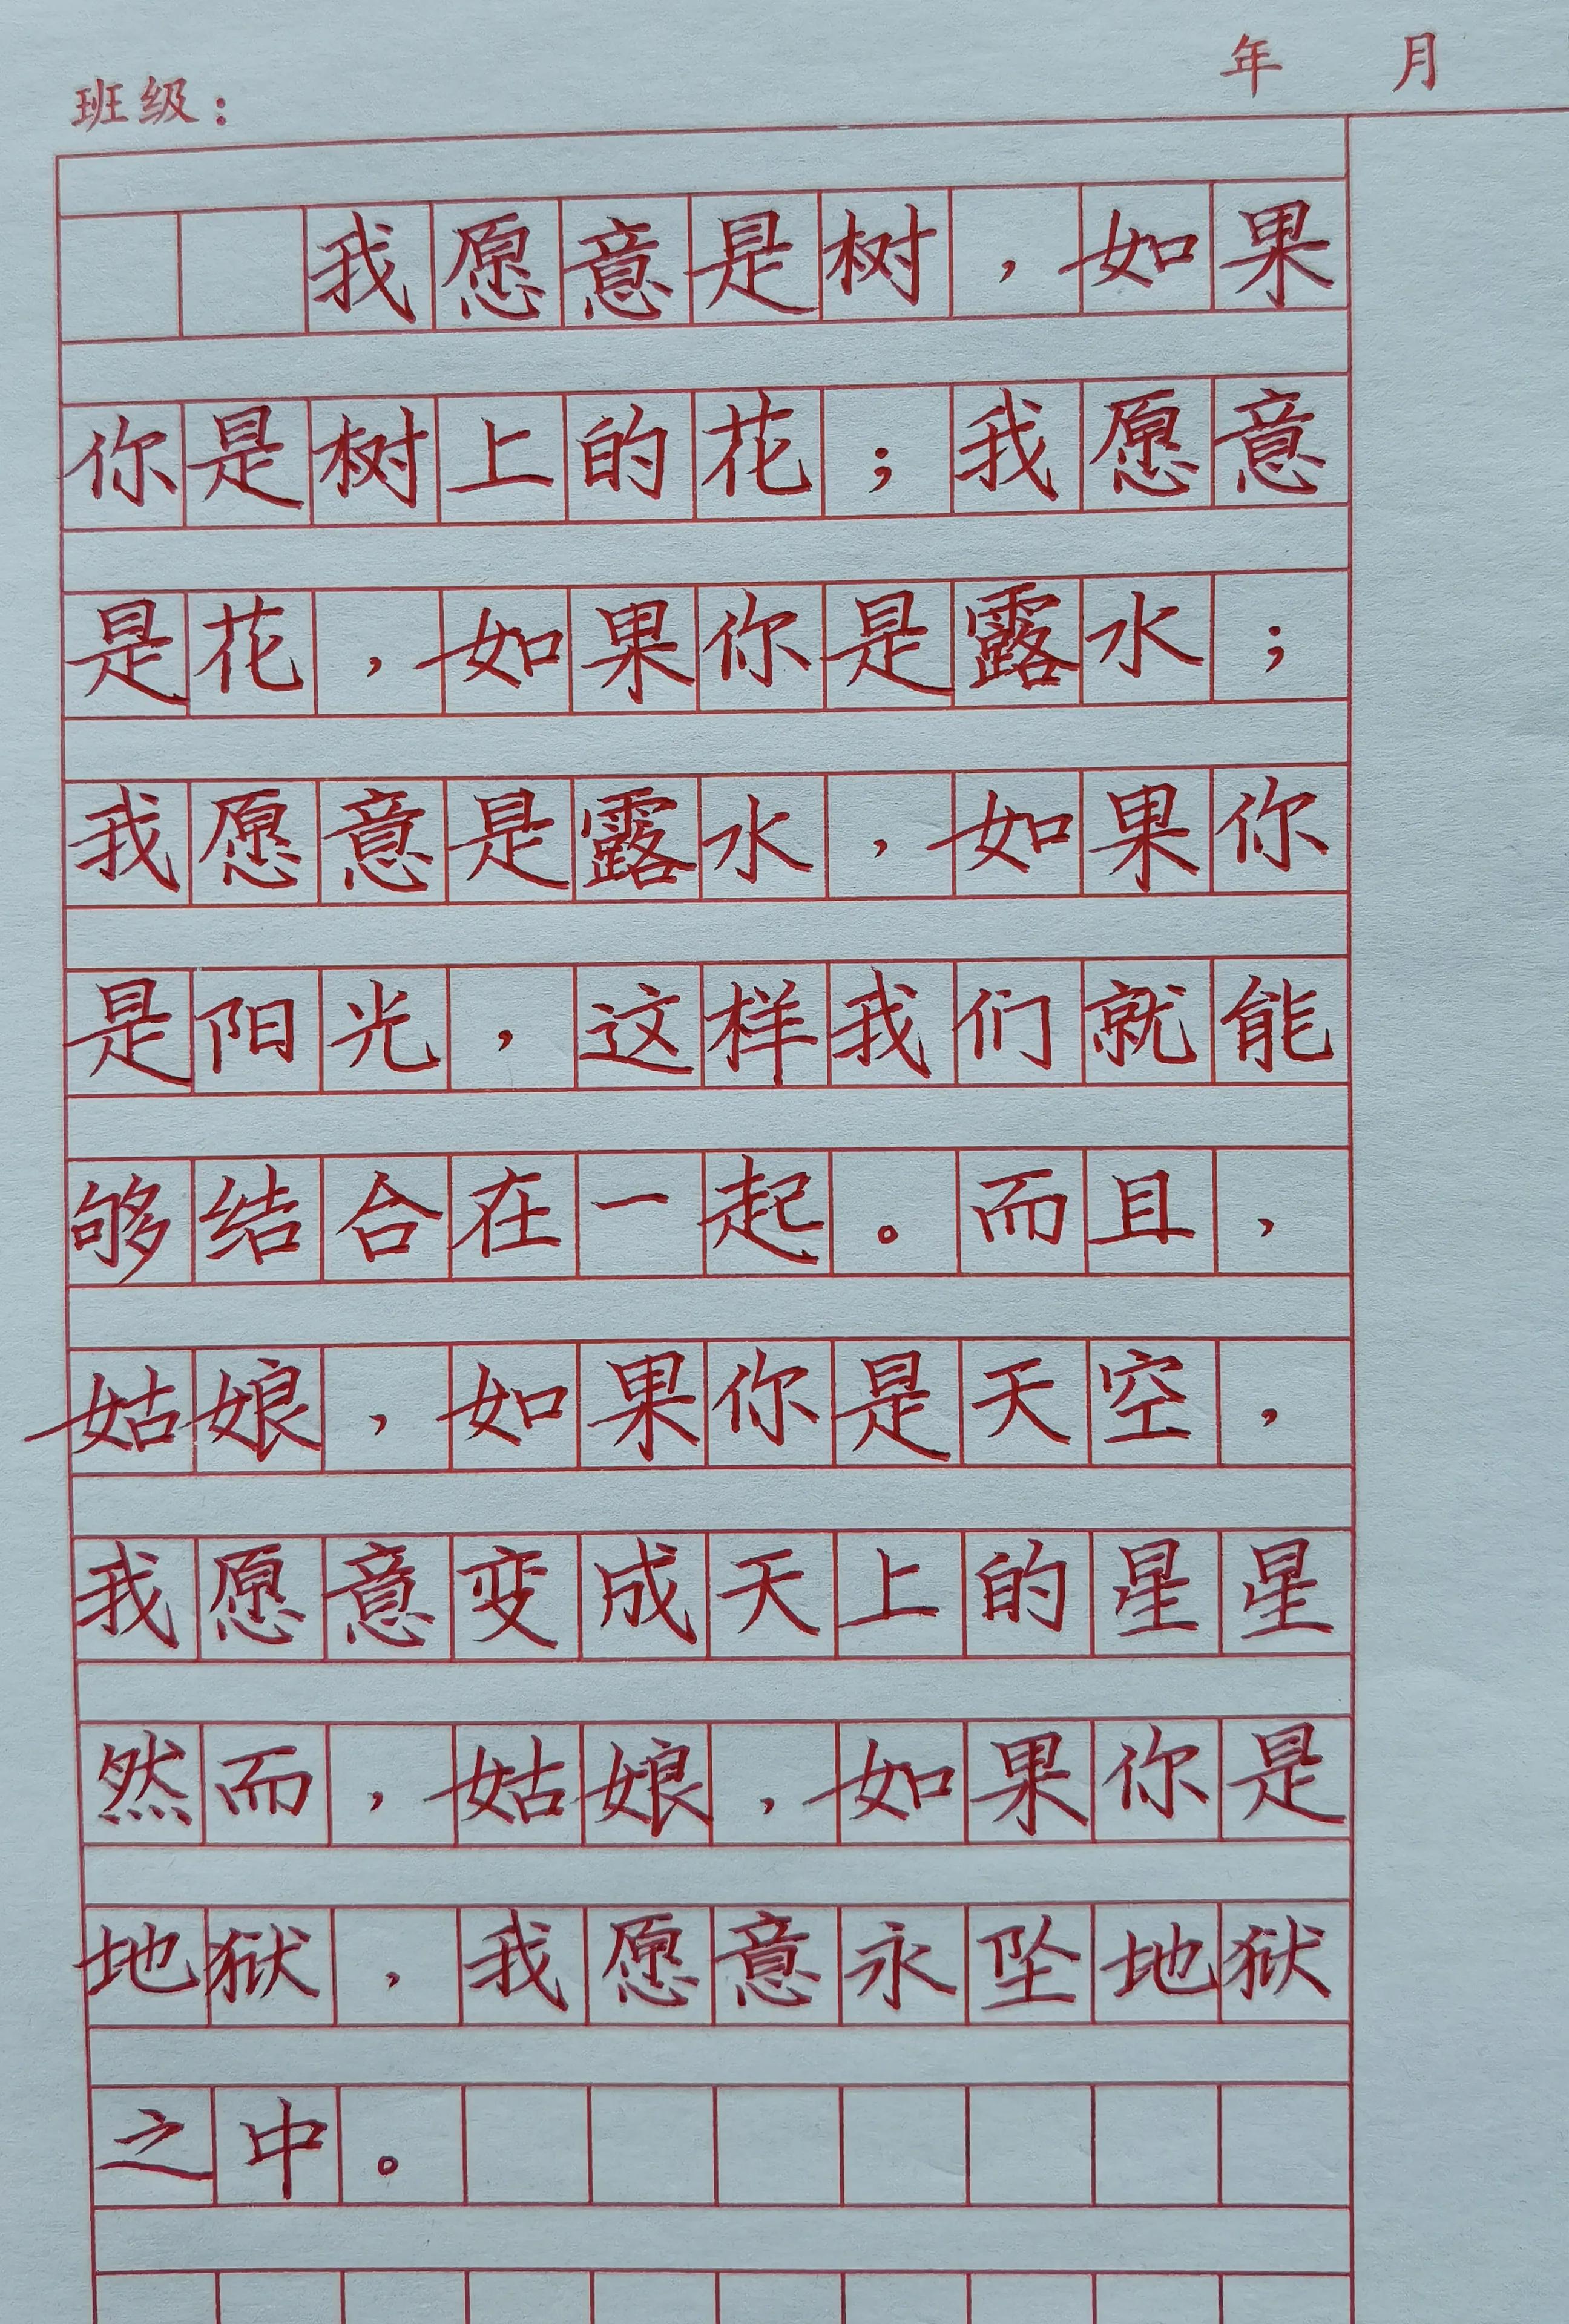 年 月
班级：
我愿意是树，如果
你是树上的花；我愿意
是花，如果你是露水；
我愿意是露水，如果你
是阳光，这样我们就能
够结合在一起。而且，
姑娘，如果你是天空，
我愿意变成天上的星星
然而，姑娘，如果你是
地狱，我愿意永坠地狱
之中。